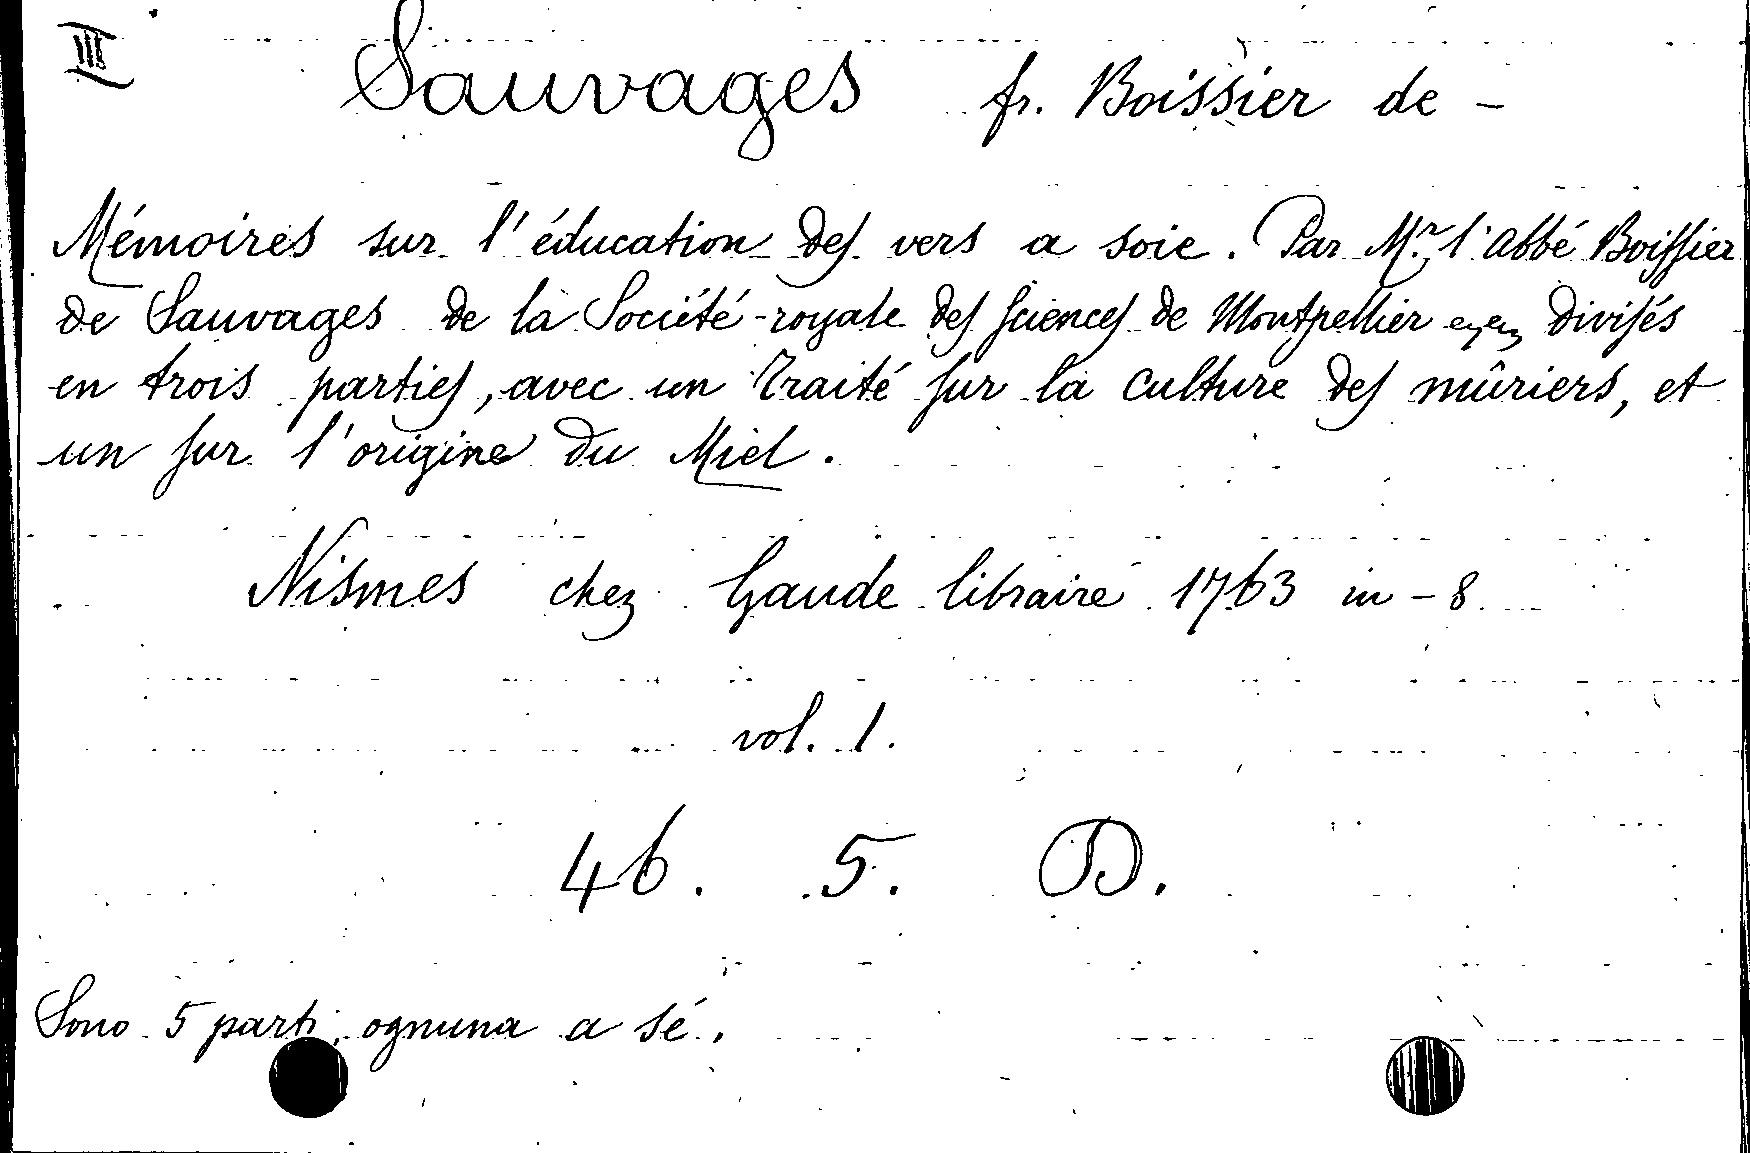 III
Sauvages fr. Boissier de -
Mémoires sur l'éducation des vers a soie. Par Mr. l'abbé Boissier
de Sauvages de la Société royale des sciences de Montpellier divisés
en trois parties, avec un Traité sur la culture des mûriers, et
un sur l'origine du Miel.
Nismes chez Gaude libraire 1763 in-8
vol. 1.
46. 5. D.
Sono 5 parti, ognuna a sé.